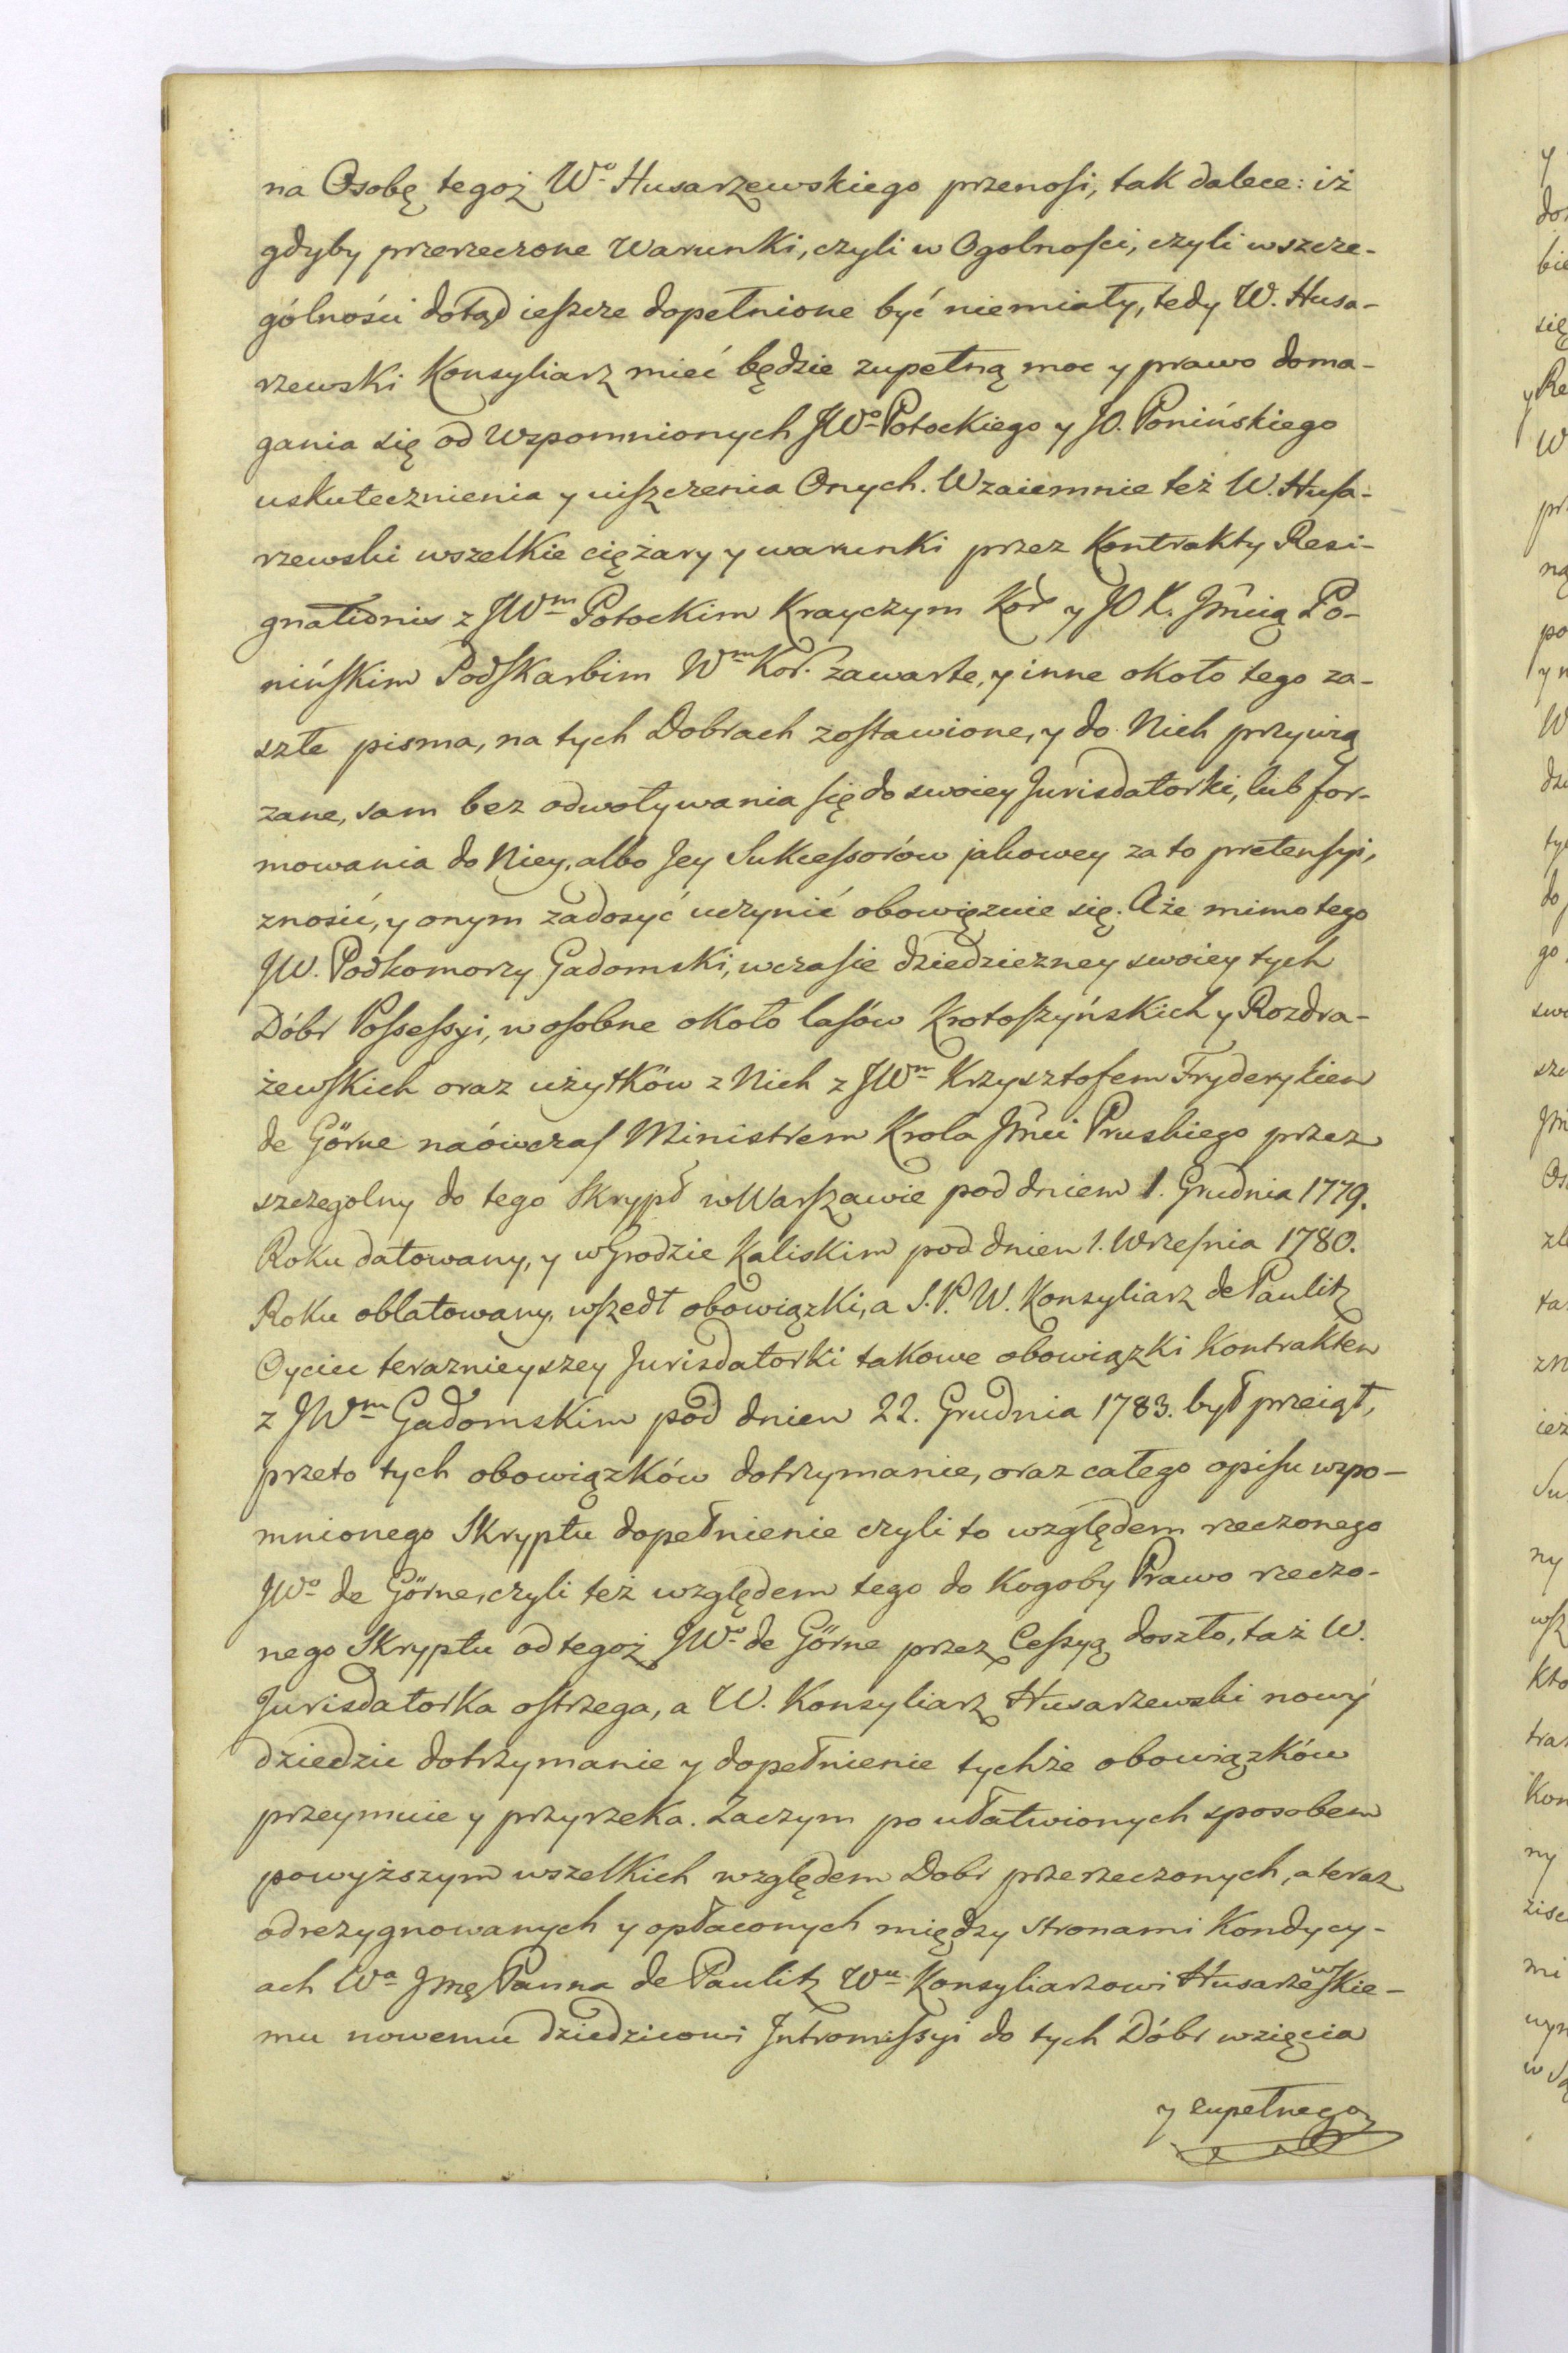 na Osobę tegoż Wo Husarzewskiego przenosi, tak dalece: iż
gdyby przerzeczone Warunki, czyli w Ogolności, czyli wszcze-
gólności dotąd ieszcze dopełnione być niemiały, tedy W. Husa-
rzewski Konsyliarz mieć będzie zupełną moc y prawo doma-
gania się od Wzpomnionych JWo Potockiego y JO. Ponińskiego
uskutecznienia y uiszczenia Onych. Wzaiemnie też W. Husa-
rzewski wszelkie ciężary y warunki przez Kontrakty Resi-
gnationis z JWm Potockim Krayczym Kor y JO X. Jmcią Po-
nińskim Podskarbim Wm Kor. zawarte, y inne około tego za-
szłe pisma, na tych Dobrach zostawione, y do Nich przywią
zane, sam bez odwoływania się do swoiey Jurisdatorki, lub for-
mowania do Niey, albo Jey Sukcessorów jakowey za to pretensyi,
znosić, y onym zadosyć uczynić obowięzuie się. Aże mimo tego
JW. Podkomorzy Gadomski, wczasie dziedziczney swoiey tych
Dóbr Possessyi, w osobne około lasów Krotoszyńskich y Rozdra-
żewskich oraz użytków z Nich z JWm Krzysztofem Fryderykiem
de Görne naówczas Ministrem Krola Jmci Pruskiego przez
szczegolny do tego Skrypt w Warszawie pod dniem 1. Grudnia 1779.
Roku datowany, y w Grodzie Kaliskim pod dniem 1. Września 1780.
Roku oblatowany, wszedł obowiązki, a S. P. W. Konsyliarz de Paulitz
Oyciec teraznieyszey Jurisdatorki takowe obowiązki Kontraktem
z JWm Gadomskim pod dniem 22. Grudnia 1783. był przeiął,
przeto tych obowiązków dotrzymanie, oraz całego opisu wzpo-
mnionego Skryptu dopełnienie czyli to względem rzeczonego
JWo de Görne, czyli też względem tego do Kogoby Prawo rzeczo-
nego Skryptu od tegoż JWo de Görne przez Cessyą doszło, taż W.
Jurisdatorka ostrzega, a W. Konsyliarz Husarzewski nowy
dziedzic dotrzymanie y dopełnienie tychże obowiązków
przeymuie y przyrzeka. Zaczym po ułatwionych sposobem
powyższym wszelkich względem Dobr przerzeczonych, a teraz
odrezygnowanych y opłaconych między stronami Kondycy-
ach Wa Jmę Panna de Paulitz Wu Konsyliarzowi Husarzewskie-
mu nowemu dziedzicowi Intromissyi do tych Dóbr wzięcia
y zupełnego